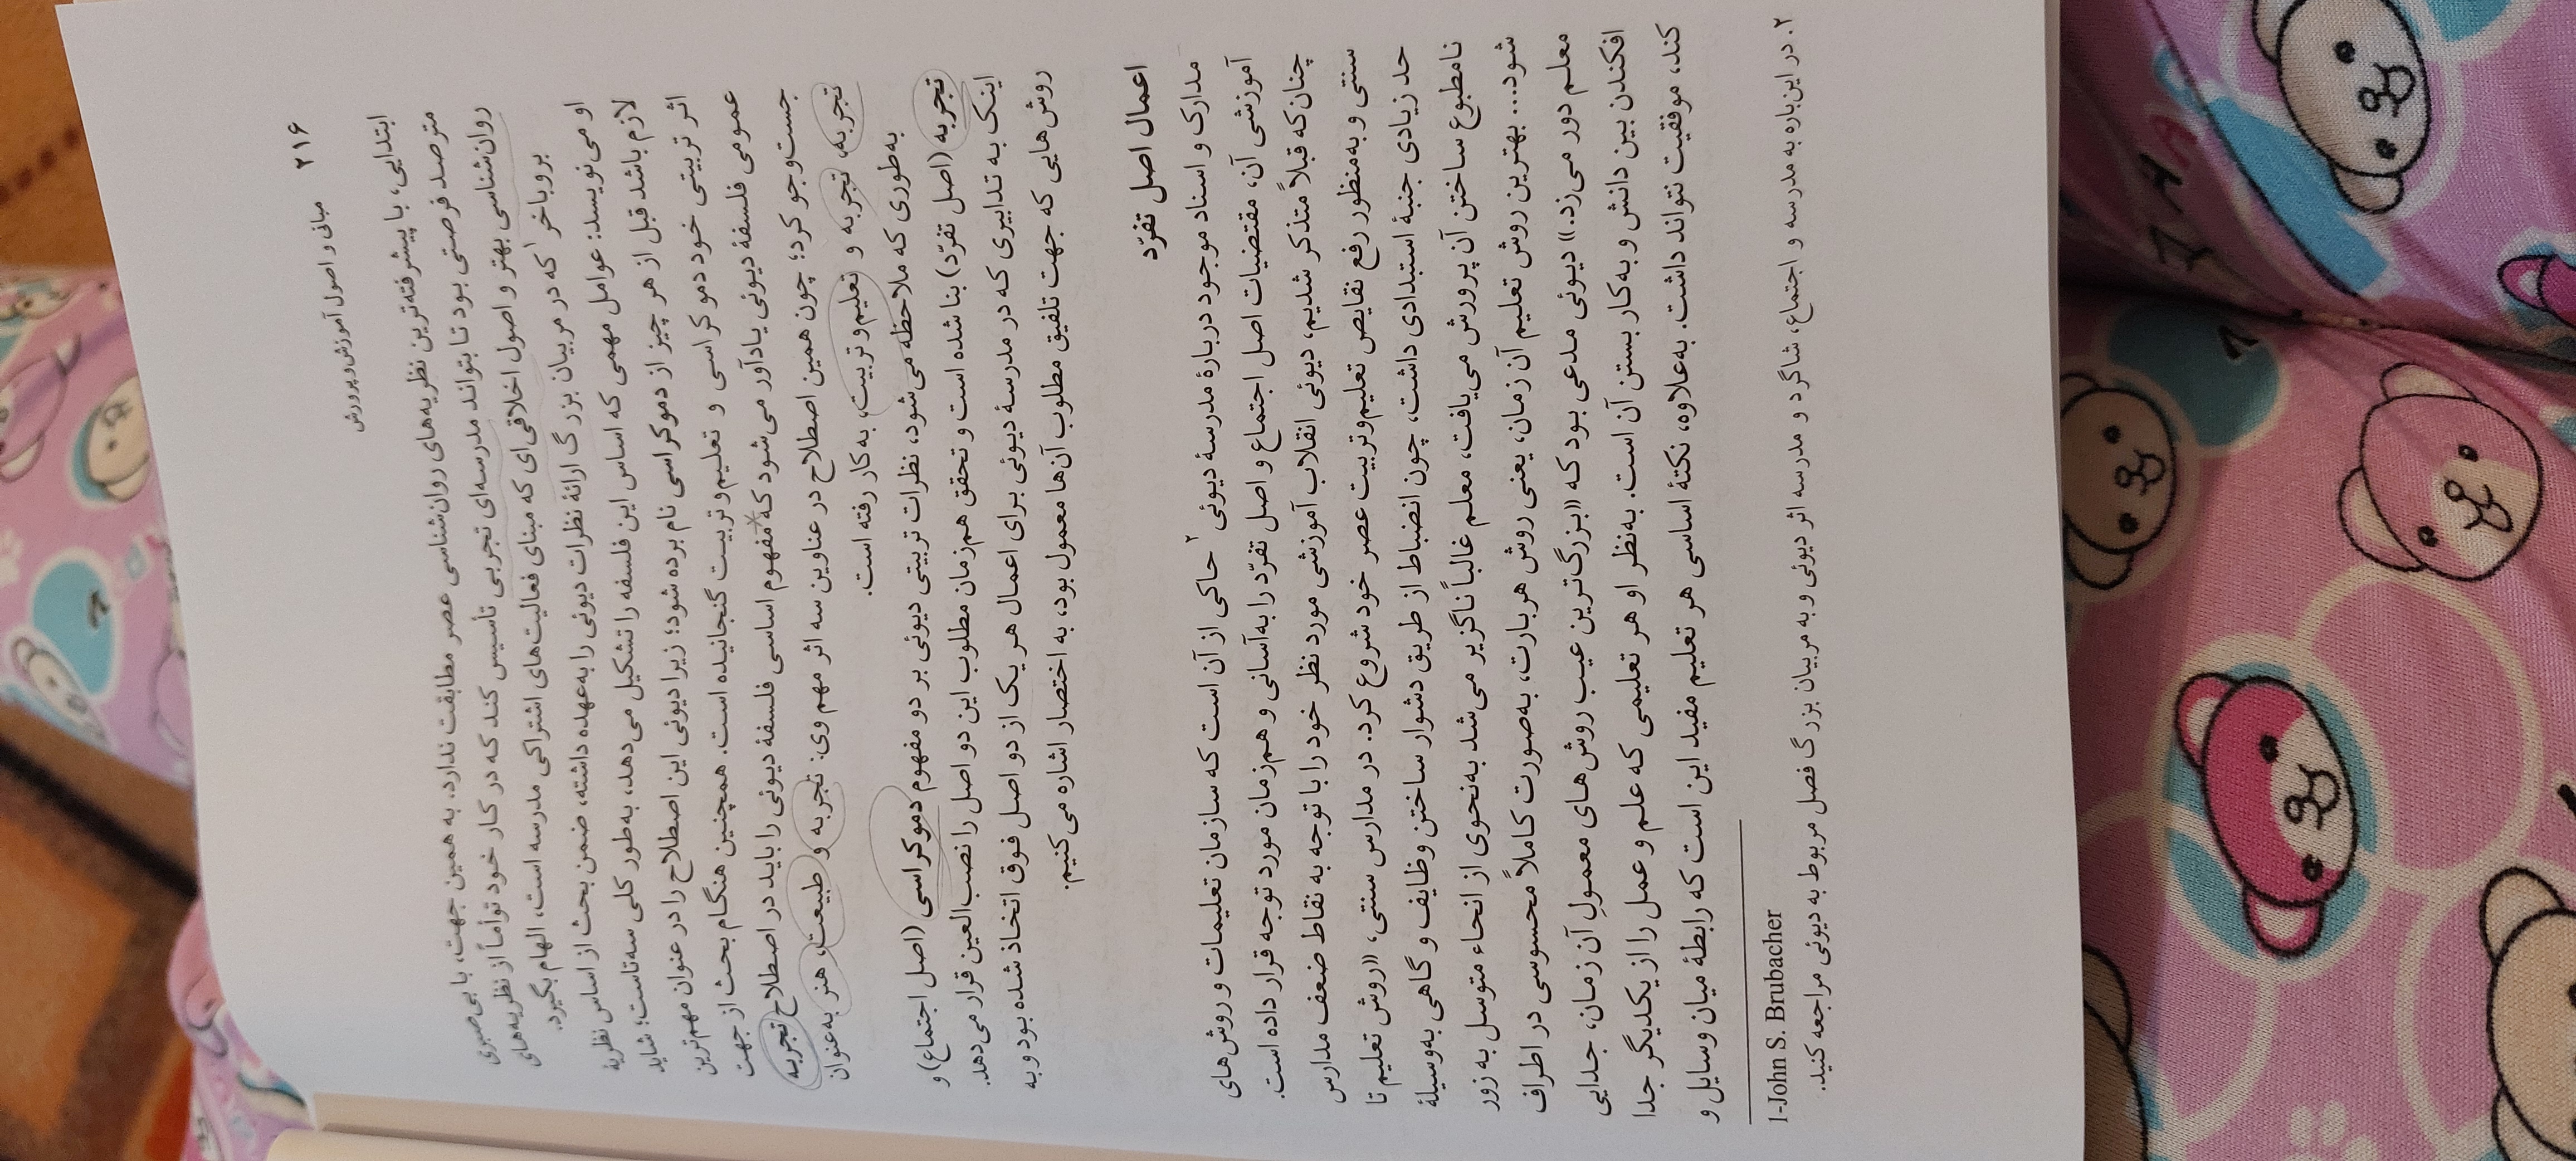 ۲۱۶ مبانی و اصول آموزش‌وپرورش
ابتدایی، با پیشرفته‌ترین نظریه‌های روان‌شناسی عصر مطابقت ندارد. به همین جهت، با بی‌صبری
مترصد فرصتی بود تا بتواند مدرسه‌ای تجربی تأسیس کند که در کار خود توأماً از نظریه‌های
روان‌شناسی بهتر و اصول اخلاقی‌ای که مبنای فعالیت‌های اشتراکی مدرسه است، الهام بگیرد.
بروباخر۱ که در مربیان بزرگ ارائهٔ نظرات دیوئی را به‌عهده داشته، ضمن بحث از اساس نظریهٔ
او می‌نویسد: عوامل مهمی که اساس این فلسفه را تشکیل می‌دهد، به‌طور کلی سه‌تاست؛ شاید
لازم باشد قبل از هر چیز از دموکراسی نام برده شود؛ زیرا دیوئی این اصطلاح را در عنوان مهم‌ترین
اثر تربیتی خود دموکراسی و تعلیم‌وتربیت گنجانیده است. همچنین هنگام بحث از جهت
عمومی فلسفهٔ دیوئی یادآور می‌شود که مفهوم اساسی فلسفهٔ دیوئی را باید در اصطلاح تجربه
جست‌وجو کرد؛ چون همین اصطلاح در عناوین سه اثر مهم وی: تجربه و طبیعت، هنر به‌عنوان
تجربه، تجربه و تعلیم‌وتربیت، به‌کار رفته است.
به‌طوری که ملاحظه می‌شود، نظرات تربیتی دیوئی بر دو مفهوم دموکراسی (اصل اجتماع) و
تجربه (اصل تفرّد) بنا شده است و تحقق هم‌زمان مطلوب این دو اصل را نصب‌العین قرار می‌دهد.
اینک به تدابیری که در مدرسهٔ دیوئی برای اعمال هر یک از دو اصل فوق اتخاذ شده بود و به
روش‌هایی که جهت تلفیق مطلوب آن‌ها معمول بود، به اختصار اشاره می‌کنیم.
اعمال اصل تفرّد
مدارک و اسناد موجود دربارهٔ مدرسهٔ دیوئی۲ حاکی از آن است که سازمان تعلیمات و روش‌های
آموزشی آن، مقتضیات اصل اجتماع و اصل تفرّد را به‌آسانی و هم‌زمان مورد توجه قرار داده است.
چنان‌که قبلاً متذکر شدیم، دیوئی انقلاب آموزشی مورد نظر خود را با توجه به نقاط ضعف مدارس
سنتی و به‌منظور رفع نقایص تعلیم‌وتربیت عصر خود شروع کرد. در مدارس سنتی، «روش تعلیم تا
حد زیادی جنبهٔ استبدادی داشت، چون انضباط از طریق دشوار ساختن وظایف و گاهی به‌وسیلهٔ
نامطبوع ساختن آن پرورش می‌یافت، معلم غالباً ناگزیر می‌شد به‌نحوی از انحاء متوسل به زور
شود... بهترین روش تعلیم آن زمان، یعنی روش هربارت، به‌صورت کاملاً محسوسی در اطراف
معلم دور می‌زد.» دیوئی مدعی بود که «بزرگ‌ترین عیب روش‌های معمولِ آن زمان، جدایی
افکندن بین دانش و به‌کار بستن آن است. به‌نظر او هر تعلیمی که علم و عمل را از یکدیگر جدا
کند، موفقیت نتواند داشت. به‌علاوه، نکتهٔ اساسی هر تعلیم مفید این است که رابطهٔ میان وسایل و
1-John S. Brubacher
۲. در این‌باره به مدرسه و اجتماع، شاگرد و مدرسه اثر دیوئی و به مربیان بزرگ فصل مربوط به دیوئی مراجعه کنید.